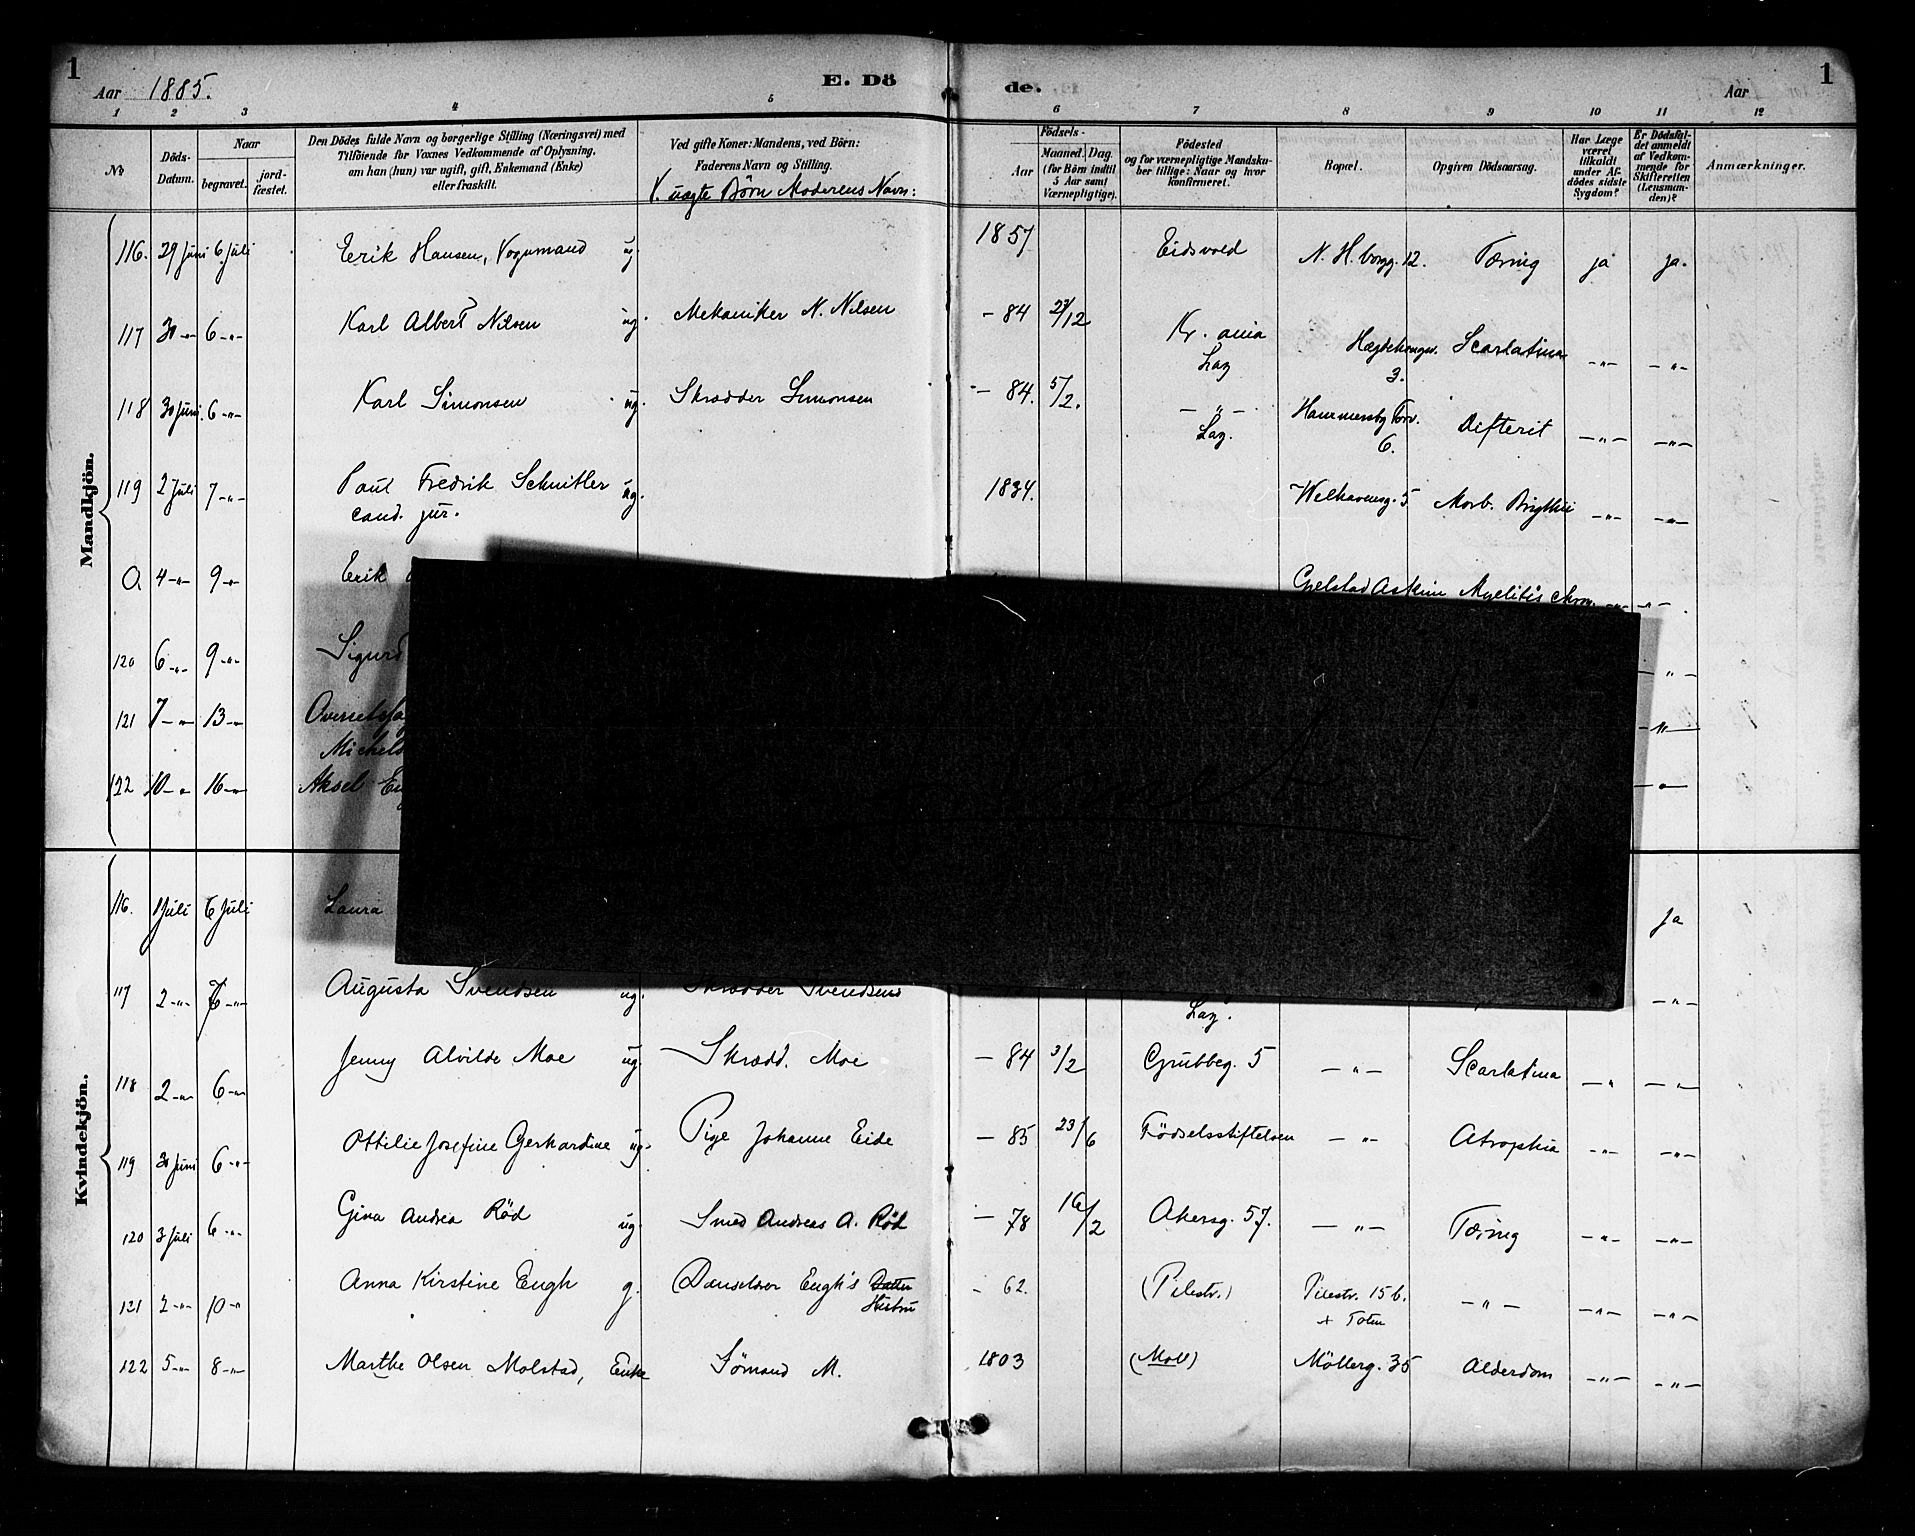 1
Aar 1885.
E. Dö
de.
Aar
1
1 2 3 4 5 6 7 8 9 10 11 12
№
Döds-Datum.
Naar
begravet.
jord-fæstet.
Den Dödes fulde Navn og borgerlige Stilling (Næringsvei) med
Tilföiende for Voxnes Vedkommende af Oplysning,
om han (hun) var ugift, gift, Enkemand (Enke)
eller fraskilt.
Ved gifte Koner: Mandens, ved Börn:
Faderens Navn og Stilling.
V. uægte Börn Moderens Navn:
Födsels-
Aar
Maaned. Dag.
(for Börn indtil
5 Aar samt
Værnepligtige).
Födested
og for værnepligtige Mandsku-
ber tillige: Naar og hvor
konfirmeret.
Bopæl.
Opgiven Dödsaarsag.
Har Læge
været
tilkaldt
under Af-
dödes sidste
Sygdom?
Er Dödsfal-
det anmeldt
af Vedkom-
mende for
Skifteretten
(Lensman-
den)?
Anmærkninger.
Mandkjön.
116. 29 Juni 6 Juli Erik Hansen, Vognmand ug. 1857 Eidsvold N. H. borgg. 12. Tæring ja ja.
117 30 -"- 6 -"- Karl Albert Nilsen ug. Mekaniker N. Nilsen - 84 27/12 Kr. ania 3. Scarlatina -"- -"-
118 30 Juni. 6 -"- Karl Simonsen ug. Skrædder Simonsen - 84. 5/2. -"- Hammersby Torv. 6. Difterit -"- -"-
119 2 Juli 7 -"- Paul Fredrik Schnitler ug. 1834. Welhavensg. 5 Morb. Brightii -"- -"-
cand. jur.
0 4 -"- 9 -"- Erik Askim Myelitis chron. -"- -"-
120 6 -"- 9 -"- Sigurd -"-
121 7 -"- 13 -"- -"-
122 10 -"- 16 -"- Aksel -"-
Kvindekjön.
116. 1 Juli 6 Juli Laura ja
117 2 -"- 6 -"- Augusta Svendsen ug. Skrædder Svendsens -"-
118 2 -"- 6 -"- Jenny Alvilde Moe ug. Skrædd. Moe - 84 3/2 Grubbeg. 5 -"- Scarlatina -"- -"-
119 30 Juni 6 -"- Ottilie Josefine Gerhardine ug. Pige Johanne Eide - 85 23/6 Födselsstiftelsen -"- Atrophia -"- -"-
120 3 Juli 6 -"- Gina Andrea Röd ug. Smed Andreas A. Röd - 78 16/2 Akersg. 57. -"- Tæring -"- -"-
121 2 -"- 10 -"- Anna Kirstine Engh g. Engh's Datter Hustru - 62. (Pilestr.) Pilestr. 15 b. + Toten -"- -"- -"-
122 5 -"- 8 -"- Marthe Olsen Molstad, Enke Sømand M. 1803 (Moll) Möllerg. 35 Alderdom -"- -"-